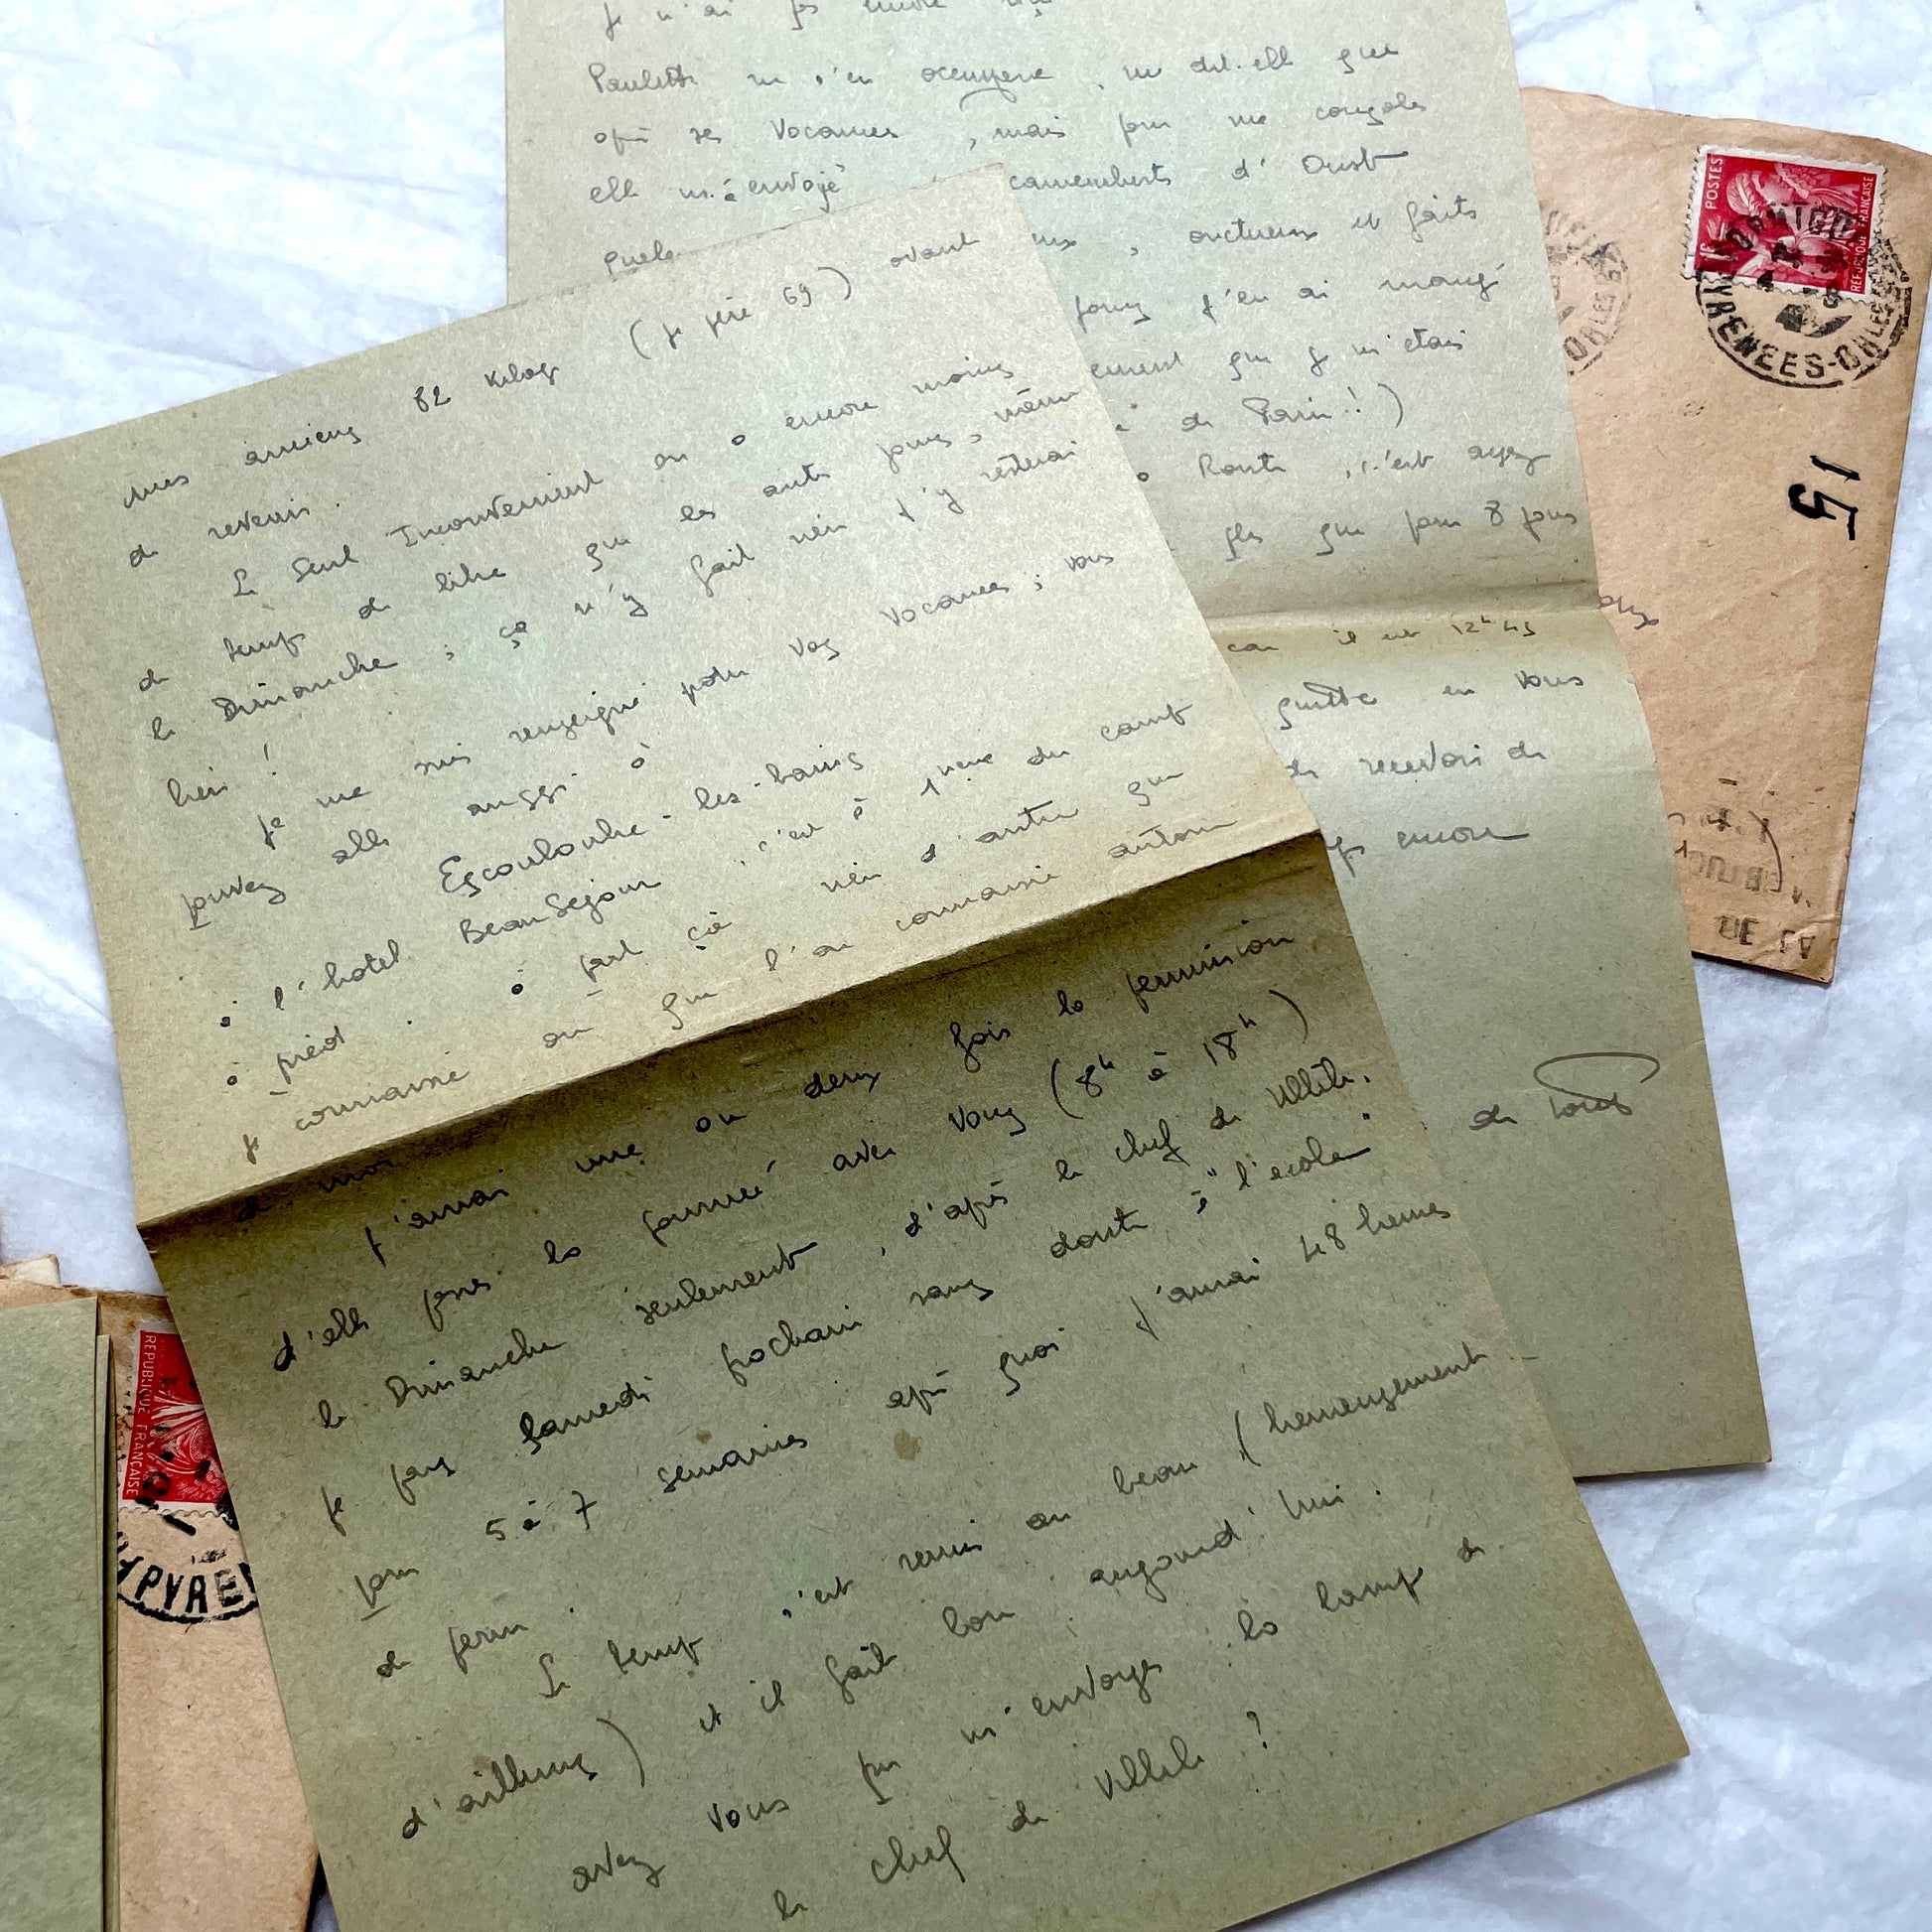 Je n'ai pas encore reçu
Paulette ne s'en occupera, me dit-elle que
après ses Vacances, mais pour me consoler
elle m'a envoyé camemberts d'Oust
onctueux et faits
j'en ai mangé
que je m'étais
de Paris!!)
Route, c'est assez
que pour 8 jours
car il est 12h45
quitte en vous
de recevoir de
encore
de tous
mes anciens 62 kilogs (je pèse 69) avant
de revenir.
Le Seul Inconvenient on a encore moins
de temps de libre que les autres jours, même
le Dimanche ; ça n'y fait rien j'y resterai
bien !
Je me suis renseigné pour vos Vacances ; vous
pouvez aller aussi à
Escouloubre-les-bains
à l'hotel BeauSejour, c'est à 1 heure du camp
à pied. à part çà rien d'autre que
je connaisse ou que l'on connaisse autour
de moi
J'aurai une ou deux fois la permission
d'aller passer la journée avec vous (8h à 18h)
le Dimanche seulement, d'après le chef de Villèle.
Je pars Samedi prochain sans doute à "l'ecole"
pour 5 à 7 semaines après quoi j'aurai 48 heures
de perm.
Le temps s'est remis au beau (heureusement
d'ailleurs) et il fait bon aujourd'hui.
avez vous pu m'envoyer la lampe de
le chef de Villèle ?
POSTES
REPUBLIQUE FRANÇAISE
PYRENEES-ORLES
15
REPUBLIQUE FRANÇAISE
PYRE